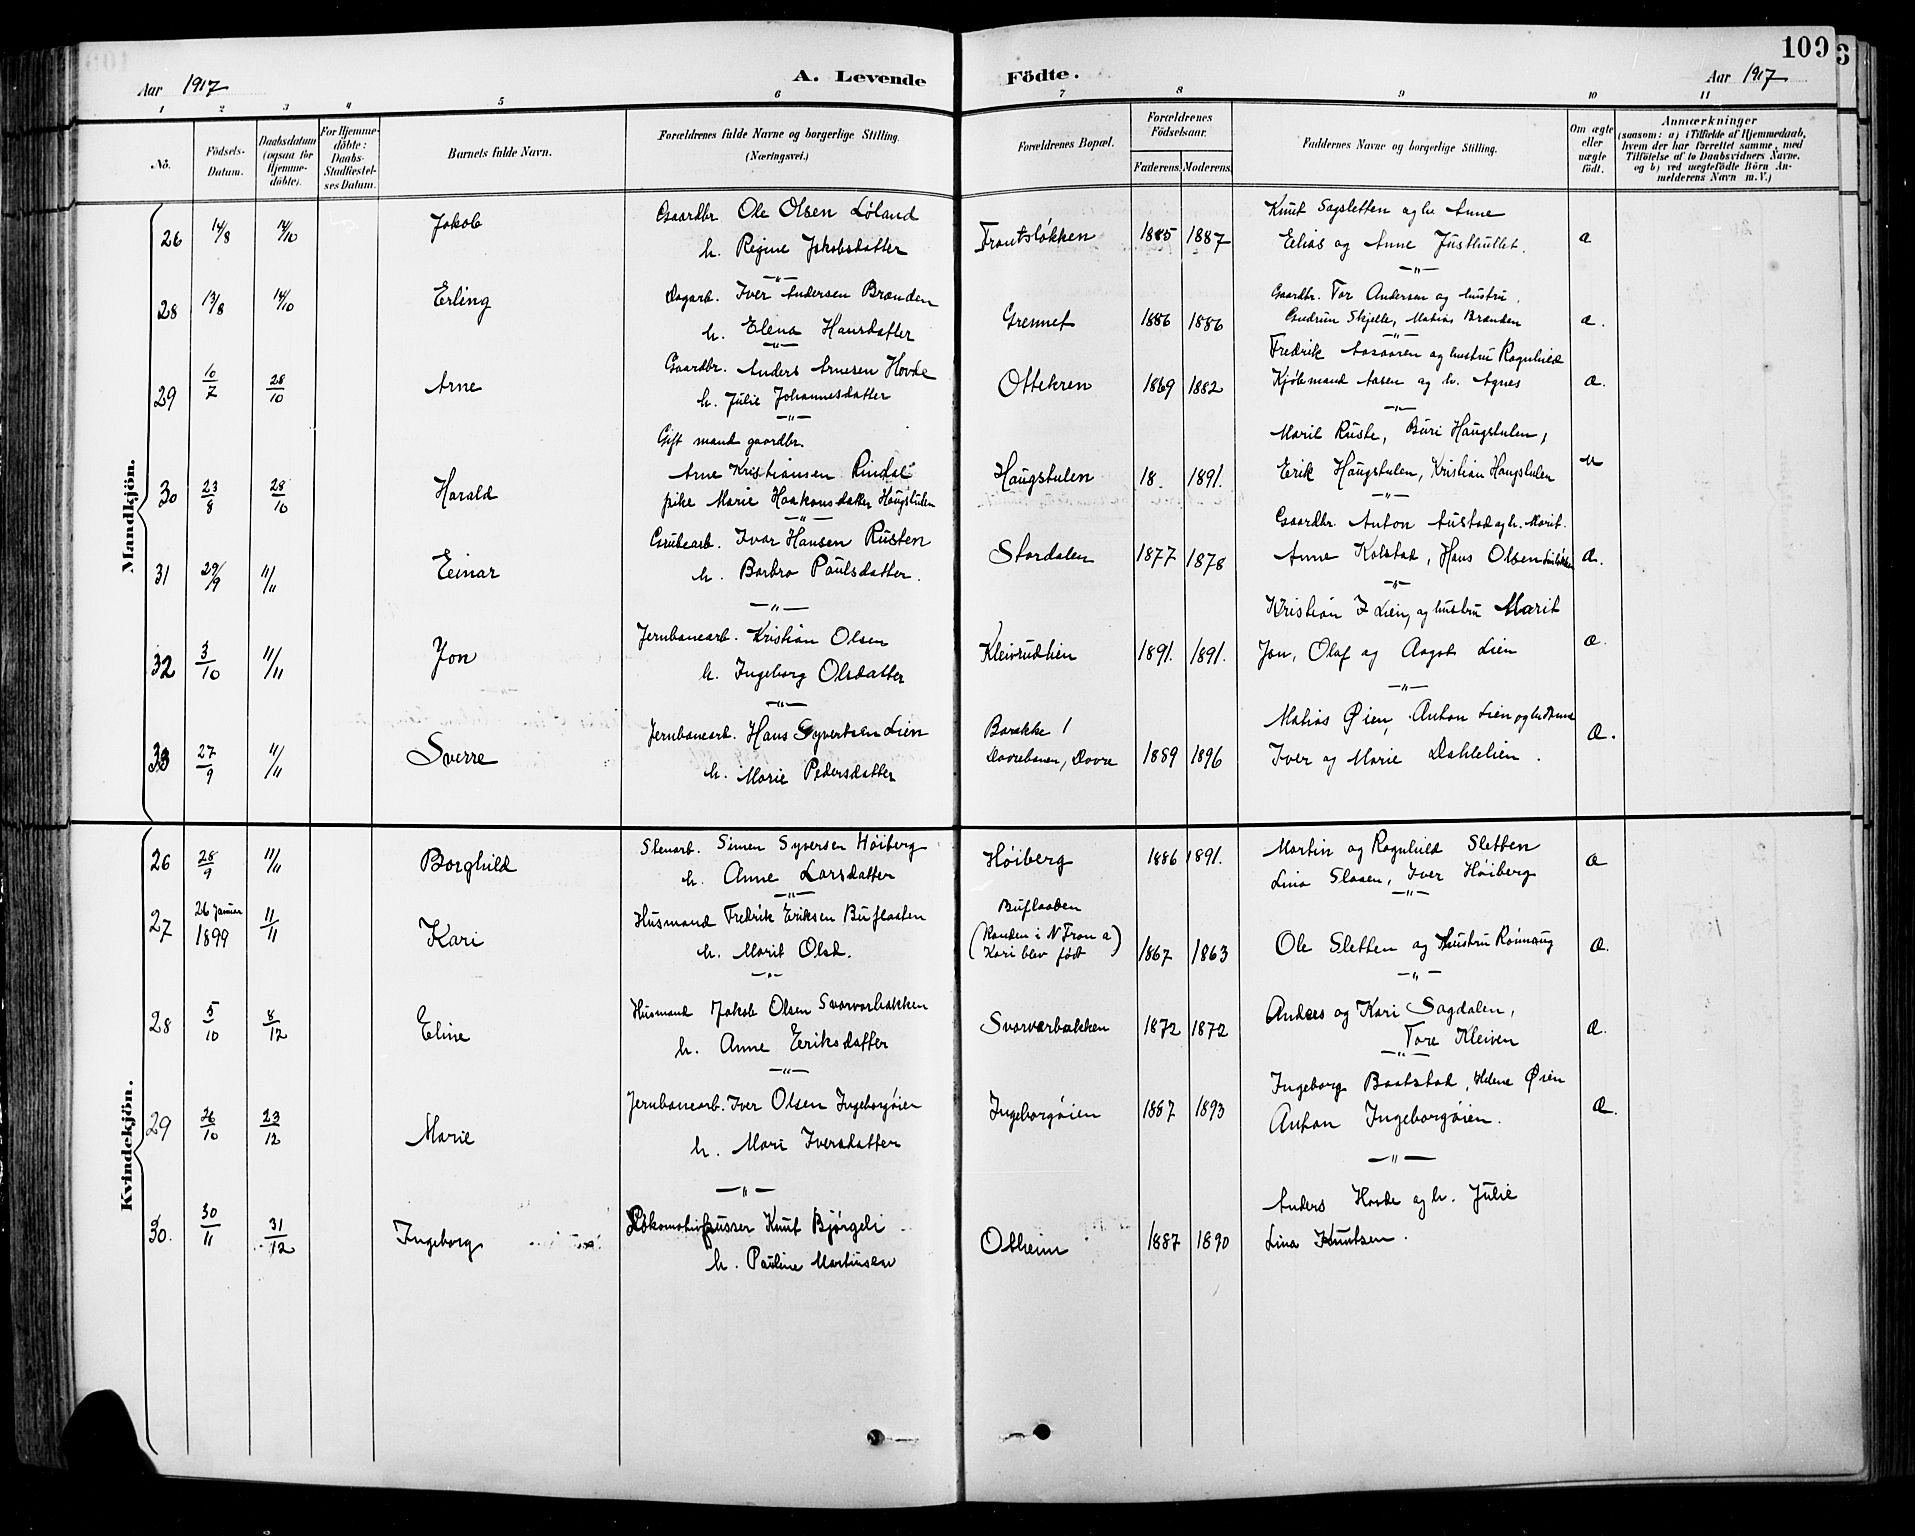 109
3
Aar 1917
A. Levende
Födte.
Aar 1917
1 2 3 4 5 6 7 8 9 10 11
No.
Födsels-
Datum.
Daabsdatum
(ogsaa for
Hjemme-
döbte).
For Hjemme-
döbte:
Daabs-
Stadfæstel-
ses Datum.
Barnets fulde Navn.
Forældrenes fulde Navne og borgerlige Stilling.
(Næringsvei.)
Forældrenes Bopæl.
Forældrenes
Födselsaar.
Faderens. Moderens.
Faddernes Navne og borgerlige Stilling.
Om ægte
eller
uægte
födt.
Anmærkninger
(saasom: a) i Tilfælde af Hjemmedaab,
hvem der har forrettet samme, med
Tilföielse af to Daabsvidners Navne,
og b) ved uægtefödte Börn An-
melderens Navn m. V.)
Mandkjön.
26 14/8 14/10 Jakob
Gaardbr Ole Olsen Løland
h. Regine Jakobsdatter
1885 1887
Knut Sagsletten og h. Anne
Elias og Anne
a
28 13/8 14/10 Erling
Dagarb. Iver Andersen Brænden
h. Elena Hansdatter
Grennet 1886 1886
Gaardbr. Tor Andersen og hustru
Gudrun Skjelle, Matias Brænden
a.
29 10/7 28/10 Arne
Gaardbr. Anders Arnesen Hovde
h. Julie Johannesdatter
Ottekren 1869 1882
Fredrik Aasaaren og hustru Ragnhild
Kjøbmand Aasen og h. Agnes
a.
30 23/8 28/10 Harald
Gift mand gaardbr.
Arne Kristiansen Rindal
pike Marie Haakonsdatter Haugstulen
Haugstulen 18 1891.
Marit Ruste, Buri Haugstulen,
Erik Haugstulen, Kristian Haugstulen
u
31 29/9 11/11 Einar
Grubearb. Ivar Hansen Rusten
h. Barbro Paulsdatter.
Stordalen 1877 1878
Gaardbr. Anton Austad og h. Marit.
Anne Kolstad, Hans Olsen
a.
32 3/10 11/11 Jon
Jernbanearb. Kristian Olsen
h. Ingeborg Olsdatter
Kleivrudlien 1891. 1891.
Kristian I Lien, og hustru Marit
Jon, Olaf og Aagot Lien
a.
33 27/9 11/11 Sverre
Jernbanearb. Hans Syvertsen Lien
h. Marie Pedersdatter
Barakke 1
Dovrebanen, Dovre 1889 1896
Matias Øien, Anton Lien og
Iver og Marie Dahlelien.
a.
Kvindekjön.
26 28/9 11/11 Borghild
Stenarb. Simen Syversen Høiberg
h. Anne Larsdatter
Høiberg 1886 1891.
Martin og Ragnhild Sletten
Lina Slaaen, Iver Høiberg
a
27 26 Januar
1899 11/11 Kari
Husmand Fredrik Eriksen Buflaaten
h. Marit Olsd.
Buflaaden
(Randen i N Fron a)
(Kari blev født) 1867 1863
Ole Sletten og hustru Rönnaug
a.
28 5/10 8/12 Eline
Husmand Jakob Olsen Svarvarbakken
h. Anne Eriksdatter
Svarvarbakken 1872 1872
Anders og Kari Sagdalen,
Tore Kleiven
a.
29 26/10 23/12 Marie
Jernbanearb. Iver Olsen Ingeborgöien
h. Mari Iversdatter
Ingeborgöien 1887 1893
Ingeborg Baatstad, Helene Øien
Anton Ingeborgöien.
a.
30. 30/11 31/12 Ingeborg
Lokomotivpusser Knut Bjørgeli
h. Pauline Martinsen
Otheim 1887 1890
Anders Hovde og h. Julie
Lina Knutsen.